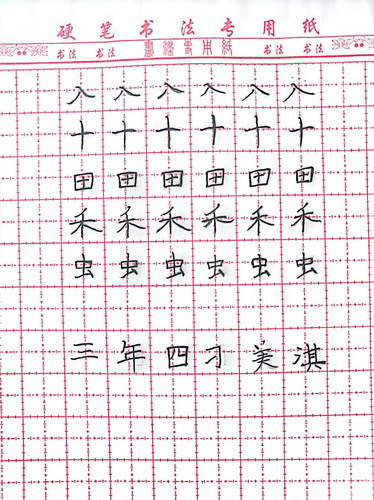 硬笔书法专用纸
书法 书法 書法专用紙 书法 书法
入入入入入入
十十十十十十
田田田田田田
禾禾禾禾禾禾
虫虫虫虫虫虫
三年四刁美淇